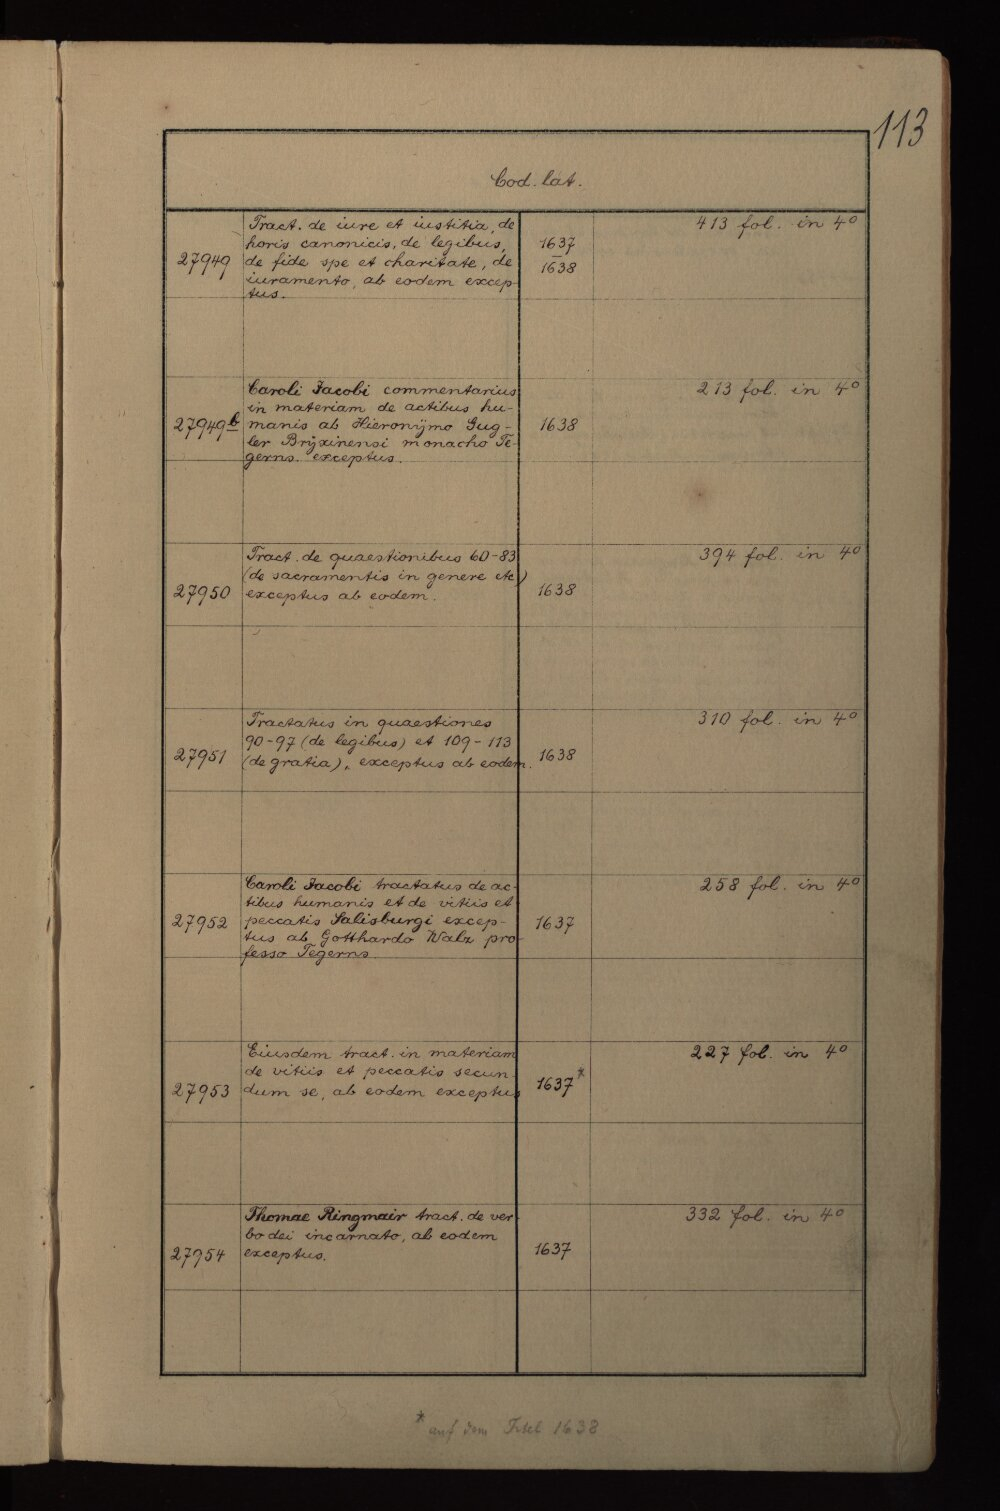 113
Cod. lat.
27949
Tract. de iure et iustitia, de
horis canonicis, de legibus,
de fide spe et charitate, de
iuramento, ab eodem excep-
tus.
1637
1638
413 fol. in 4º
27949b
Caroli Jacobi commentarius
in materiam de actibus hu-
manis ab Hieronÿmo Gug-
ler Brÿxinensi monacho Te-
gerns. exceptus.
1638
213 fol. in 4º
27950
Tract. de quaestionibus 60-83
(de sacramentis in genere etc)
exceptus ab eodem.
1638
394 fol. in 4º
27951
Tractatus in quaestiones
90-97 (de legibus) et 109-113
(de gratia), exceptus ab eodem.
1638
310 fol. in 4º
27952
Caroli Jacobi tractatus de ac-
tibus humanis et de vitiis et
peccatis Salisburgi excep-
tus ab Gotthardo Walz pro-
fesso Tegerns.
1637
258 fol. in 4º
27953
Eiusdem tract. in materiam
de vitiis et peccatis secun-
dum se, ab eodem exceptus
1637*
227 fol. in 4º
27954
Thomae Ringmair tract. de ver-
bo dei incarnato, ab eodem
exceptus.
1637
332 fol. in 4º
* auf dem Titel 1638